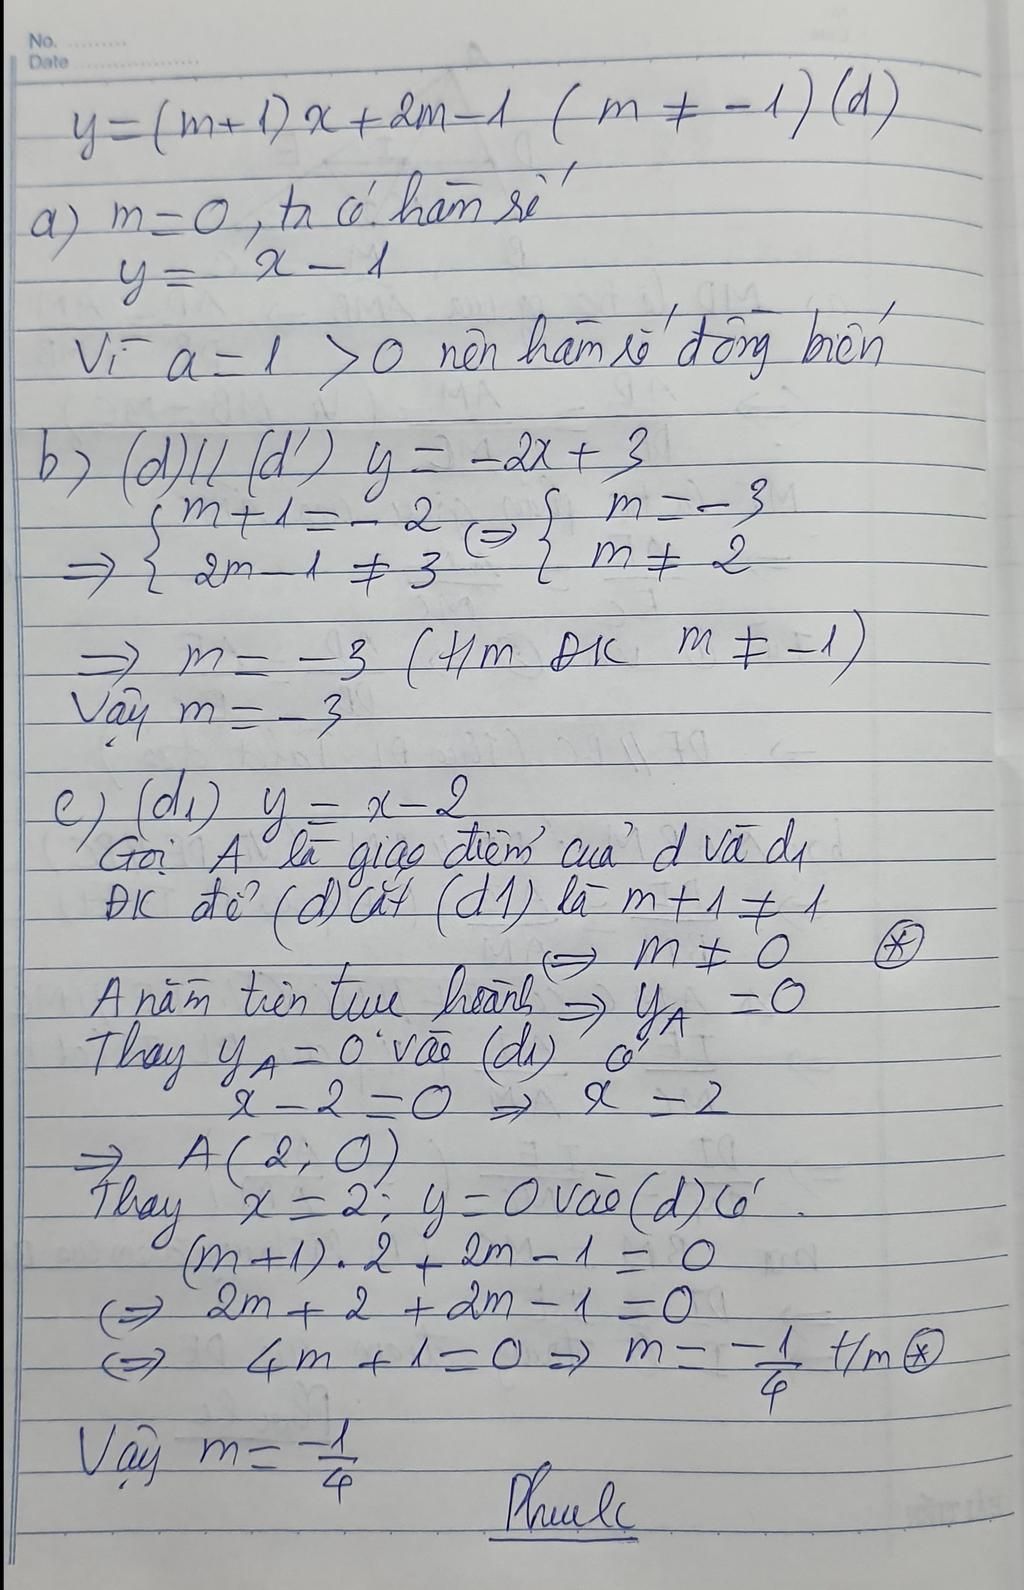 No. ..........
Date ....................
y = (m+1)x + 2m - 1 ( m ≠ -1) (d)
a) m = 0, ta có hàm số
y = x - 1
Vì a = 1 > 0 nên hàm số đồng biến
b) (d) // (d') y = -2x + 3
⇒ { m + 1 = -2 ⇔ { m = -3
2m - 1 ≠ 3 m ≠ 2
⇒ m = -3 (t/m ĐK m ≠ -1)
Vậy m = -3
c) (d1) y = x - 2
Gọi A là giao điểm của d và d1
ĐK để (d) cắt (d1) là m + 1 ≠ 1
⇔ m ≠ 0 ⊛
A nằm trên trục hoành ⇒ yA = 0
Thay yA = 0 vào (d1) có
x - 2 = 0 ⇒ x = 2
⇒ A(2; 0)
Thay x = 2; y = 0 vào (d) có .
(m+1). 2 + 2m - 1 = 0
⇔ 2m + 2 + 2m - 1 = 0
⇔ 4m + 1 = 0 ⇒ m = -1/4 t/m ⊛
Vậy m = -1/4